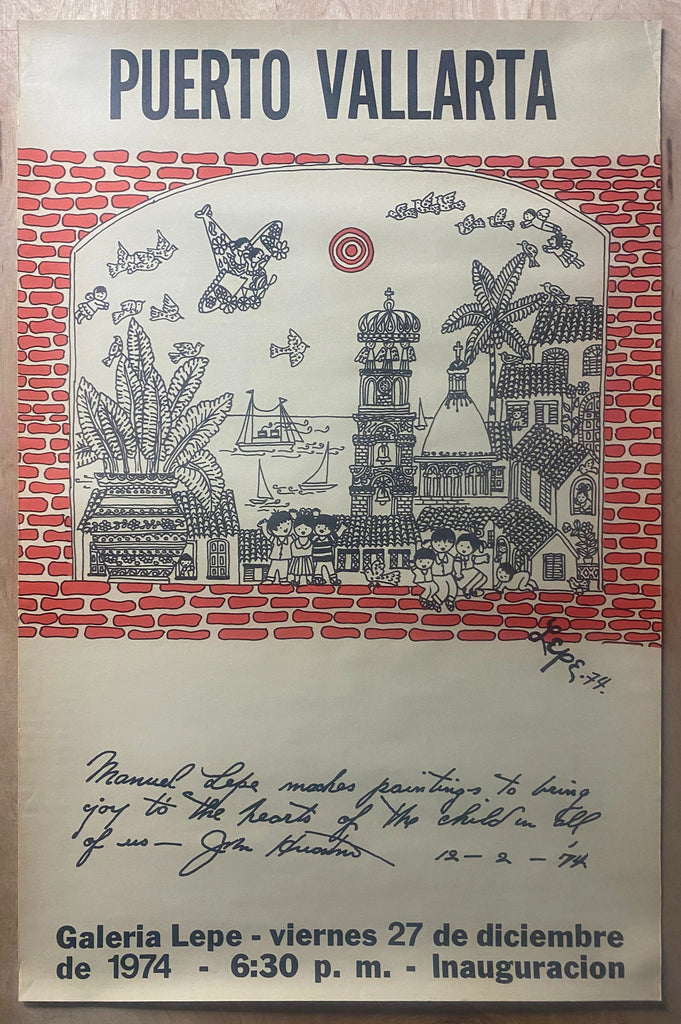 PUERTO VALLARTA
Lepe.74.
Manuel Lepe makes paintings to bring
joy to the hearts of the child in all
of us — John Huston 12 - 2 - '74
Galeria Lepe - viernes 27 de diciembre
de 1974 - 6:30 p. m. - Inauguracion